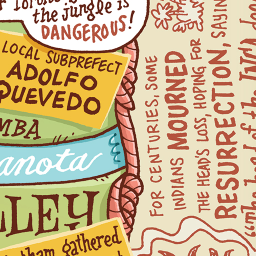 the jungle is
DANGEROUS!
LOCAL SUBPREFECT
ADOLFO
QUEVEDO
MBA
anota
LLEY
gathered
FOR CENTURIES, SOME
INDIANS MOURNED
THE HEAD'S LOSS, HOPING FOR
RESURRECTION, SAYIN